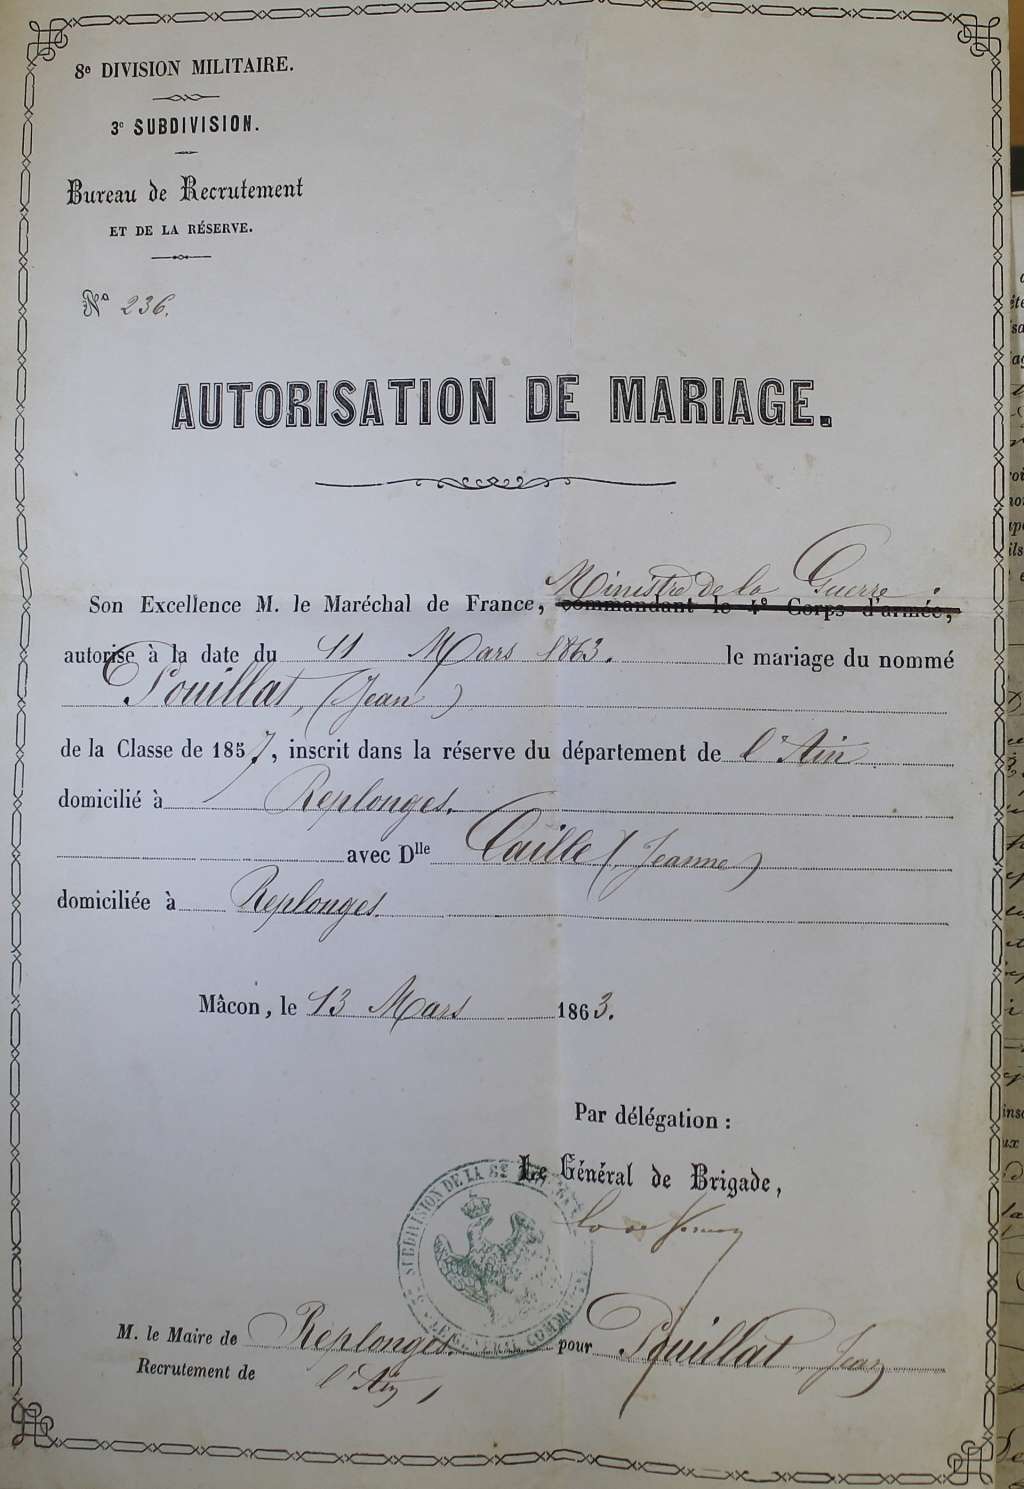 8e DIVISION MILITAIRE.
3e SUBDIVISION.
Bureau de Recrutement
ET DE LA RÉSERVE.
No 236.
AUTORISATION DE MARIAGE.
Ministre de la Guerre
Son Excellence M. le Maréchal de France, commandant le 4e Corps d'armée,
autorise à la date du 11 Mars 1863. le mariage du nommé
Pouillat, (Jean)
de la Classe de 1857, inscrit dans la réserve du département de l'Ain
domicilié à Replonges.
avec Dlle Caille (Jeanne)
domiciliée à Replonges.
Mâcon, le 13 Mars 1863.
Par délégation :
Le Général de Brigade,
3me SUBDIVISION DE LA 8e
LE GÉNÉRAL COMMA
M. le Maire de Replonges. pour Pouillat, Jean
Recrutement de l'Ain,